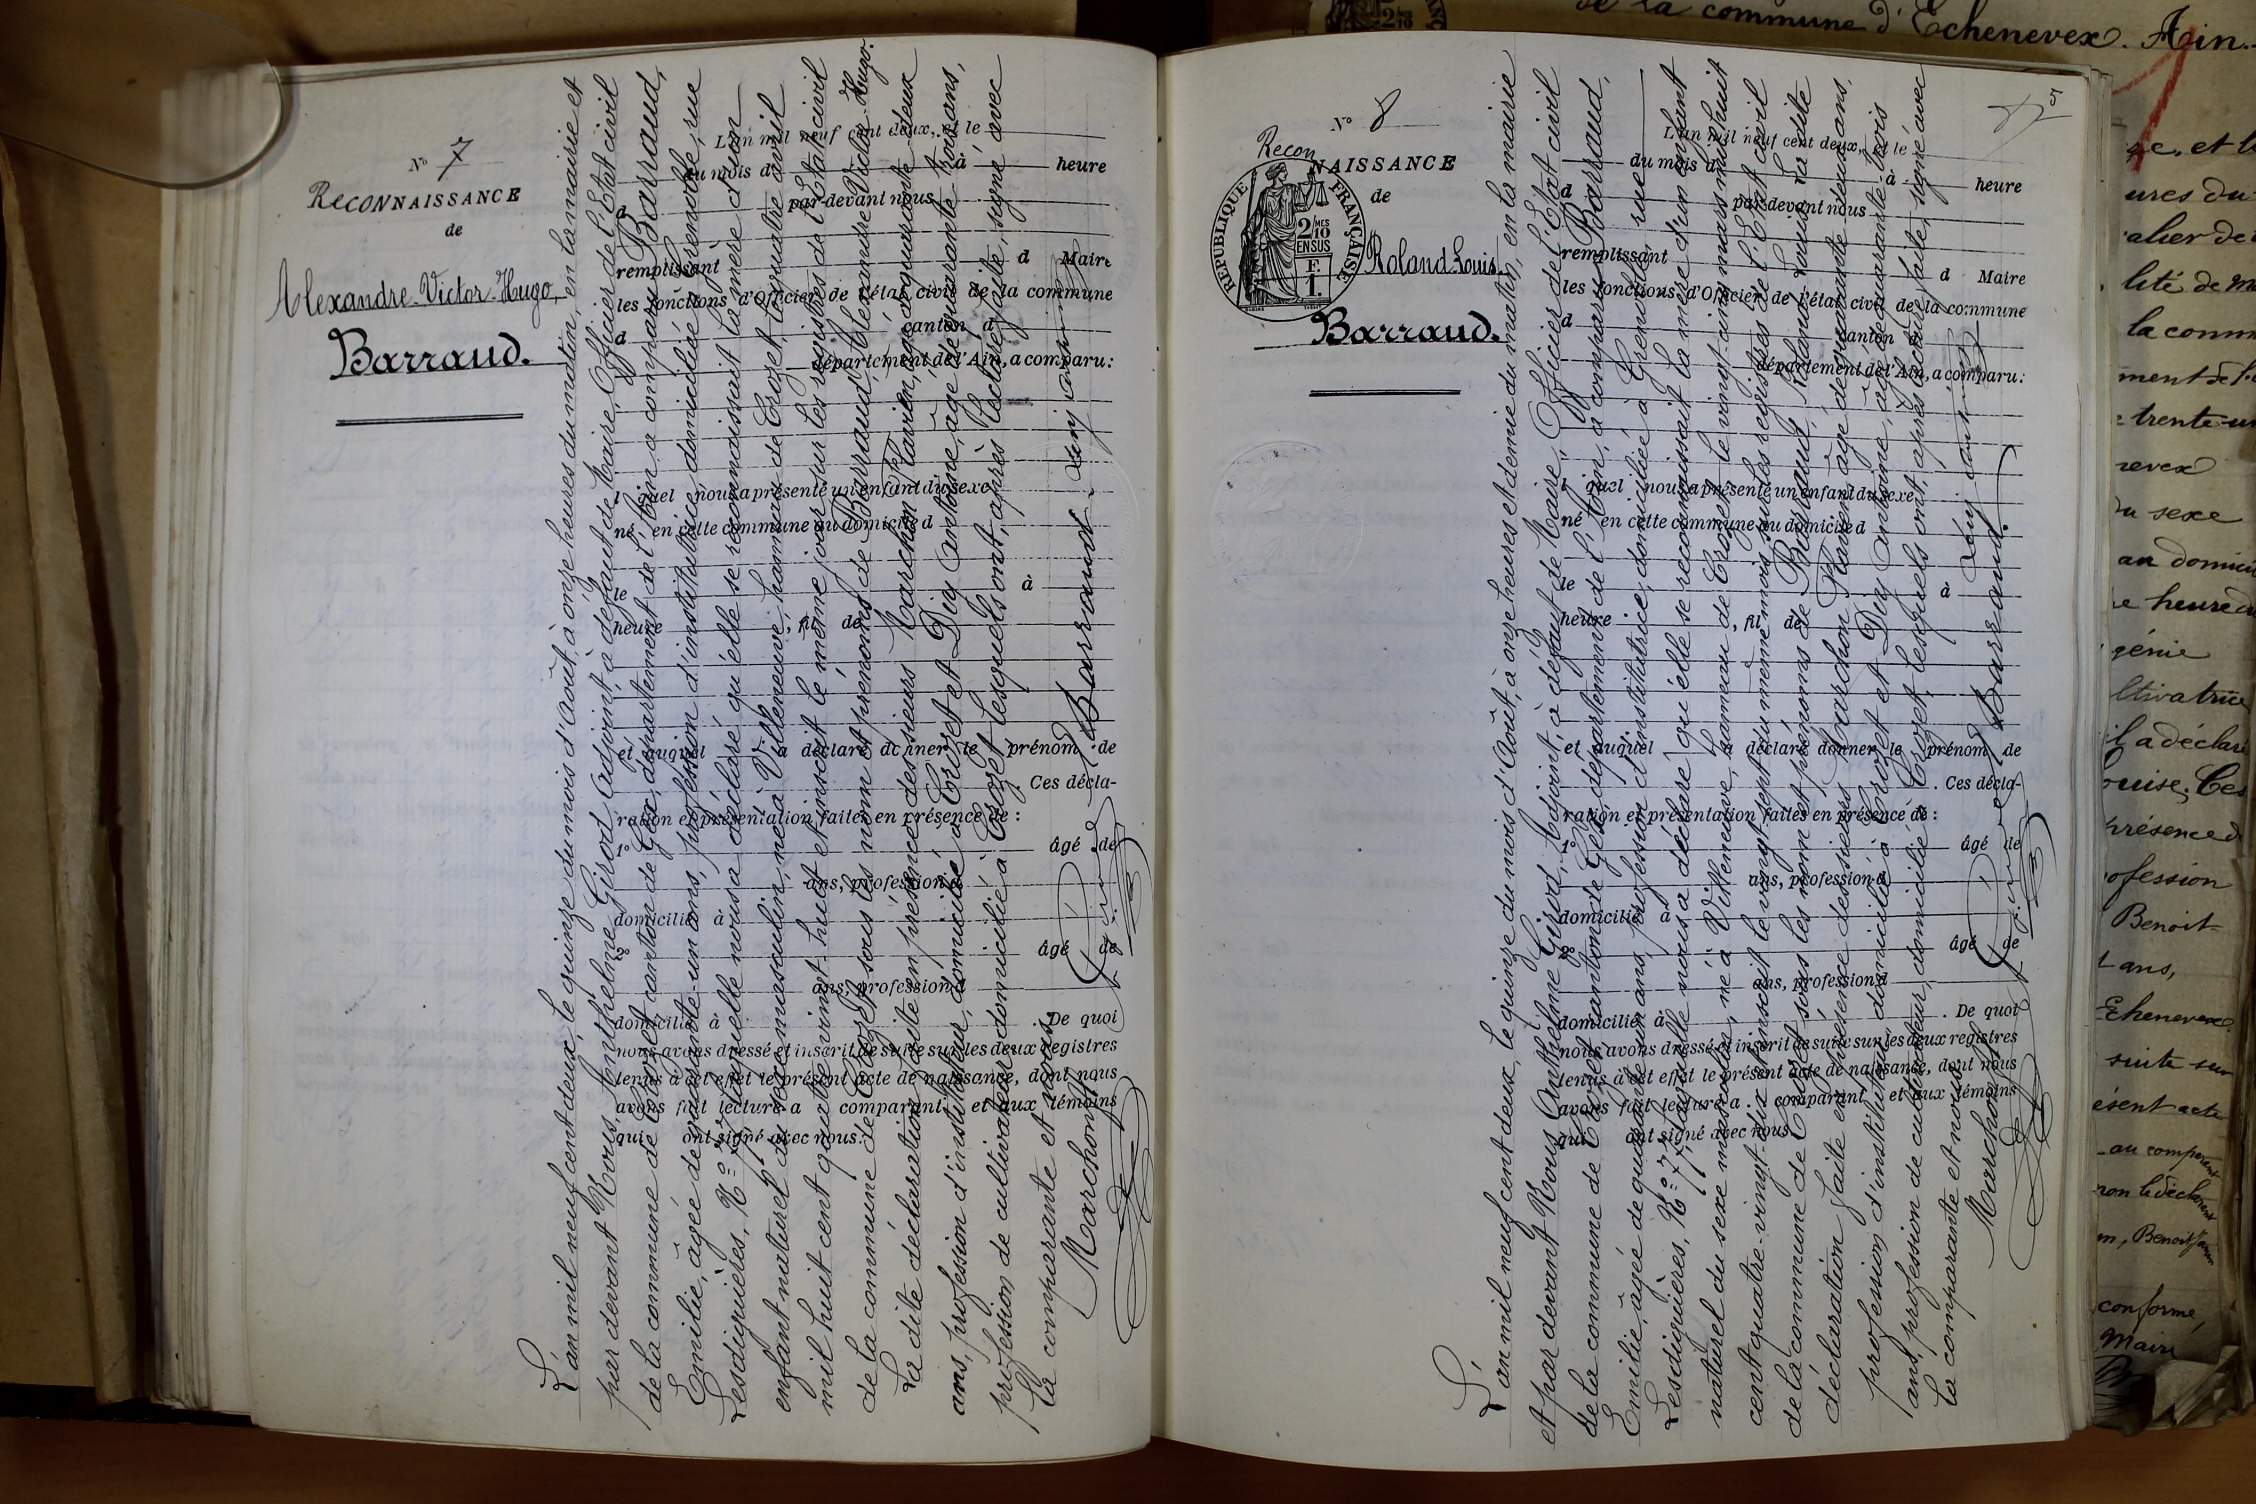 de la commune d'Echenevex. Ain.
N° 7
RECONNAISSANCE
de
Alexandre-Victor-Hugo,
Barraud.
L'an mil neuf cent deux, et le
du mois d à heure
par-devant nous
d
remplissant d Maire
les fonctions d'Officier de l'état civil de la commune
d canton d
département de l'Ain, a comparu:
l quel nous a présenté un enfant du sexe
né en cette commune au domicile d
le à
heure , fil de
et auquel a déclaré donner le prénom de
Ces décla-
ration et présentation faites en présence de :
1° âgé de
ans, profession d
domicilié à
2° âgé de
ans, profession d
domicilié à . De quoi
nous avons dressé et inscrit de suite sur les deux registres
tenus à cet effet le présent acte de naissance, dont nous
avons fait lecture a comparant et aux témoins
qui ont signé avec nous.
L'an mil neuf cent deux, le quinze du mois d'Août, à onze heures du matin, en la mairie et
par devant Nous, Anthelme Girod, Adjoint, à défaut de Maire, Officier de l'Etat civil
de la commune de Crozet canton de Gex, département de l'Ain, a comparu Barraud,
Emilie, âgée de quarante-un ans, profession d'institutrice, domiciliée à Grenoble, rue
Lesdiguières, N° 7, laquelle nous a déclaré qu'elle se reconnaissait la mère d'un
enfant naturel du sexe masculin, né à Villeneuve, hameau de Crozet, le quatre avril
mil huit cent quatre vingt-huit et inscrit le même jour sur les registres de l'Etat civil
de la commune de Crozet sous les nom et prénoms de Barraud, Alexandre Victor Hugo.
La dite déclaration faite en présence des sieurs Marchon Flavien, âgé de quarante-deux
ans, profession d'instituteur, domicilié à Crozet et Diq Antoine, âgé de quarante trois ans,
profession de cultivateur domicilié à Crozet lesquels ont, après lecture faite, signé avec
la comparante et nous.
Marchon f. Girod Barraud
N° 8
Recon NAISSANCE
de
REPUBLIQUE FRANÇAISE
2/10 MES
EN SUS
F.
1.
Roland Louis,
Barraud.
L'an mil neuf cent deux, et le
du mois d
d à heure
par-devant nous
remplissant d Maire
les fonctions d'Officier de l'état civil de la commune
d canton d
département de l'Ain, a comparu:
l quel nous a présenté un enfant du sexe
né en cette commune au domicile d
le à
heure , fil de
et auquel a déclaré donner le prénom de
. Ces décla-
ration et présentation faites en présence de :
1° âgé de
ans, profession d
domicilié à
2° âgé de
ans, profession d
domicilié à . De quoi
nous avons dressé et inscrit de suite sur les deux registres
tenus à cet effet le présent acte de naissance, dont nous
avons fait lecture a comparant et aux témoins
qui ont signé avec nous.
L'an mil neuf cent deux, le quinze du mois d'Août, à onze heures et demie du matin, en la mairie
et par devant Nous Anthelme Girod, Adjoint, à défaut de Maire, Officier de l'Etat civil
de la commune de Crozet canton de Gex, département de l'Ain, a comparu Barraud,
Emilie, âgée de quarante-un ans, profession d'institutrice, domiciliée à Grenoble, rue
Lesdiguières, N° 7, laquelle nous a déclaré qu'elle se reconnaissait la mère d'un enfant
naturel du sexe masculin, né à Villeneuve, hameau de Crozet, le vingt-cinq mars mil huit
cent quatre-vingt-dix et inscrit le vingt-sept du même mois sur les registres de l'Etat civil
de la commune de Crozet sous les nom et prénoms de Barraud, Roland Louis. La dite
déclaration faite en présence des sieurs Marchon Flavien âgé de quarante deux ans,
profession d'instituteur, domicilié à Crozet et Diq Antoine, âgé de quarante trois
ans, profession de cultivateur, domicilié à Crozet, lesquels ont, après lecture faite, signé avec
la comparante et nous.
Marchon f. Girod Barraud.
ures du
la comm
trente-un
du sexe
au domici
heure du
génie
ltivatrice
il a déclaré
ouise. Ces
présence d
ofession
Benoit
ans,
Echenevex
suite sur
ésent acte
au comparant
m, Benoit
conforme,
Maire